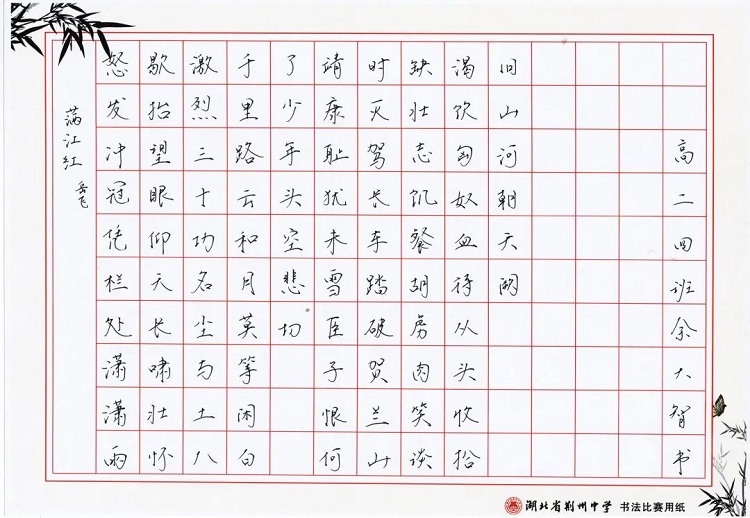 满江红 岳飞
怒发冲冠凭栏处潇潇雨
歇抬望眼仰天长啸壮怀
激烈三十功名尘与土八
千里路云和月莫等闲白
了少年头空悲切
靖康耻犹未雪臣子恨何
时灭驾长车踏破贺兰山
缺壮志饥餐胡虏肉笑谈
渴饮匈奴血待从头收拾
旧山河朝天阙
高二四班余大智书
湖北省荆州中学 书法比赛用纸